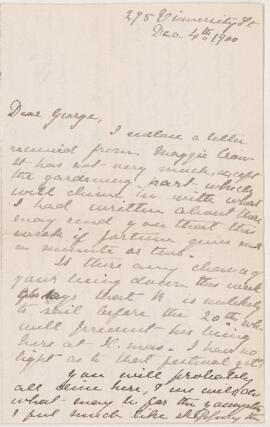 295 University St
Dec. 4th 1900
Dear George,
I enclose a letter
received from Maggie
It has not very much, except
the gardening part which
will chime in with what
I had written about that
may send you that this
week if fortune gives me
a minute or two.
Is there any chance of
your being down this week
says that it is unlikely
to sail before the 20th
will prevent his being
here at X. mas. I have no
light as to that festival yet
you will probably
all dine here, &
what may be for the youngsters
I feel much like